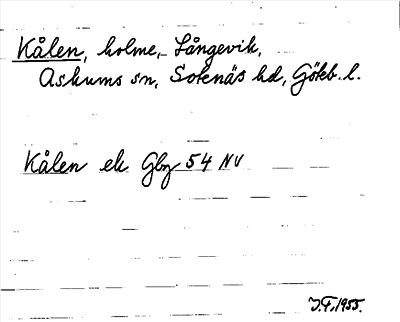 Kålen, holme, Långevik,
Askums sn, Sotenäs hd, Göteb. l.
Kålen ek Gbg 54 NV
J.F. 1955.